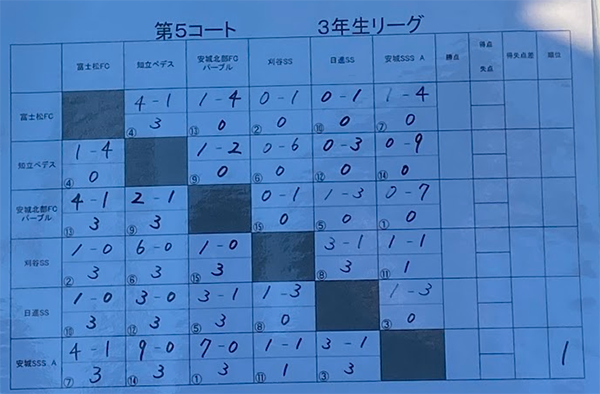 第5コート 3年生リーグ
富士松FC 知立ペデス 安城北部FC パープル 刈谷SS 日進SS 安城SSS A 勝点 得点 失点 得失点差 順位
富士松FC 4-1 1-4 0-1 0-1 1-4
④ 3 ⑬ 0 ② 0 ⑩ 0 ⑦ 0
知立ペデス 1-4 1-2 0-6 0-3 0-9
④ 0 ⑨ 0 ⑥ 0 ⑫ 0 ⑭ 0
安城北部FC パープル 4-1 2-1 0-1 1-3 0-7
⑬ 3 ⑨ 3 ⑮ 0 ⑤ 0 ① 0
刈谷SS 1-0 6-0 1-0 3-1 1-1
② 3 ⑥ 3 ⑮ 3 ⑧ 3 ⑪ 1
日進SS 1-0 3-0 3-1 1-3 1-3
⑩ 3 ⑫ 3 ⑤ 3 ⑧ 0 ③ 0
安城SSS A 4-1 9-0 7-0 1-1 3-1 1
⑦ 3 ⑭ 3 ① 3 ⑪ 1 ③ 3